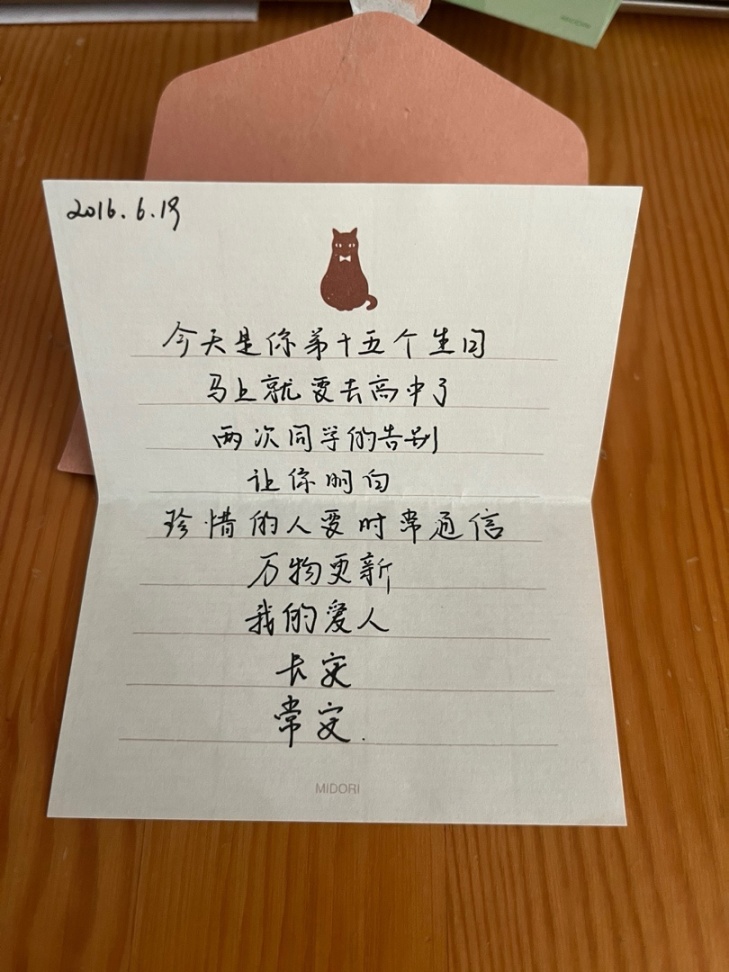 MIDORI
2016.6.19
今天是你第十五个生日
马上就要去高中了
两次同学的告别
让你明白
珍惜的人要时常通信
万物更新
我的爱人
长安
常安.
MIDORI